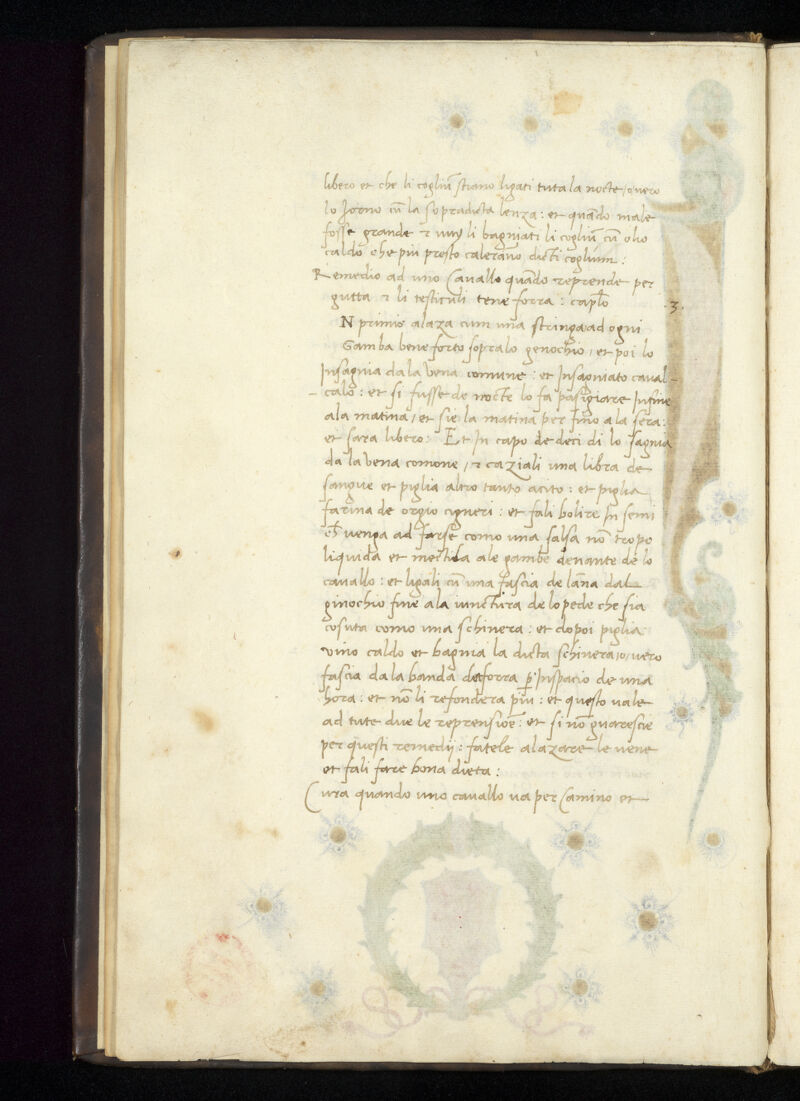 libero et che li cogliū stiano ligati tuta la nocte / overo
lo Jorno cū la sopradicta lenza : et quādo male
fosse grande & li bagniati li cogliū cū olio
caldo che piu presto calerano dicti cogliuni :
Remedio ad uno Cavallo quādo reprende per
gutta & li testiculi tene forra : caplo .3.
N primis alaza cum una stringa ad ogni
Gamba bene forto sopra lo genochio / et poi lo
Insagnia da la vena comune : et Insagniato caval-
calo : et si fusse de nocte lo fa pasigiare Infine
ala matina / et sie la matina per fino ala sera :
et sara libero : Et In capo de deci di lo sagnia
da la vena comone / & caziali una libra de
sangue et piglia altro tanto acito : et piglia
farina de orgio cigneri : et fali bolire In semi
et venga ad farse como una salsa nō tropo
liquida et mectila ale gambe denante de lo
cavallo : et ligali cū una fascia de lana dal
ginochio fine ala iunctura de lo pede che sia
cosuta como una schinera : et dopoi piglia
vino caldo et bagnia la dicta schinera / o / vero
fascia da la banda de forra p̄ Inspacio de una
hora : et nō li refondera piu : et questo vale
ad tute due le reprensiōe : et si nō guarescie
per questi remedij : fatele alazare le vene
et fali fare bona dieta :
Cura quando uno cavallo va per Camino et